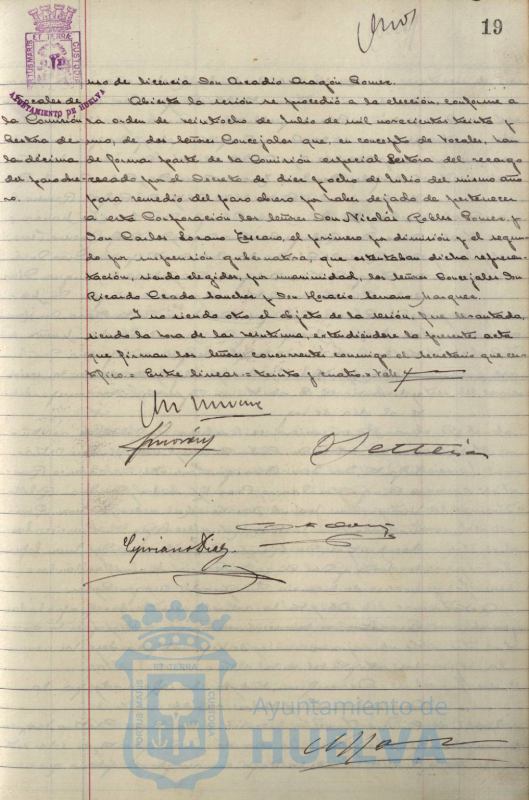 19
PORTUS MARIS ET TERRAE CUSTODIA
AYUNTAMIENTO DE HUELVA
Vocales de
la Comisión
Gestora de
la décima
del paro obre-
ro.
uso de licencia Don Arcadio Aragón Gomez.
Abierta la sesión se procedió a la elección, conforme a
la orden de veintiocho de Julio de mil novecientos treinta y
uno, de dos señores Concejales que, en concepto de Vocales, han
de formar parte de la Comisión especial Gestora del recargo
creado por el Decreto de diez y ocho de Julio del mismo año
para remedio del paro obrero por haber dejado de pertenecer
a esta Corporación los señores Don Nicolás Robles Gomez, y
Don Carlos Lozano, el primero por dimisión y el segun-
do por suspensión gubernativa, que ostentaban dicha represen-
tación, siendo elegidos, por unanimidad, los señores Concejales Don
Ricardo Terrades Sanchez y Don Horacio Serrano Marquez.
Y no siendo otro el objeto de la sesión, fue levantada,
siendo la hora de las veintiuna, extendiéndose la presente acta
que firman los señores concurrentes conmigo el Secretario que cer-
tifico.= Entre lineas = treinta y cuatro = Vale
Cipriano Diaz.
PORTUS MARIS ET TERRAE CUSTODIA
Ayuntamiento de
HUELVA